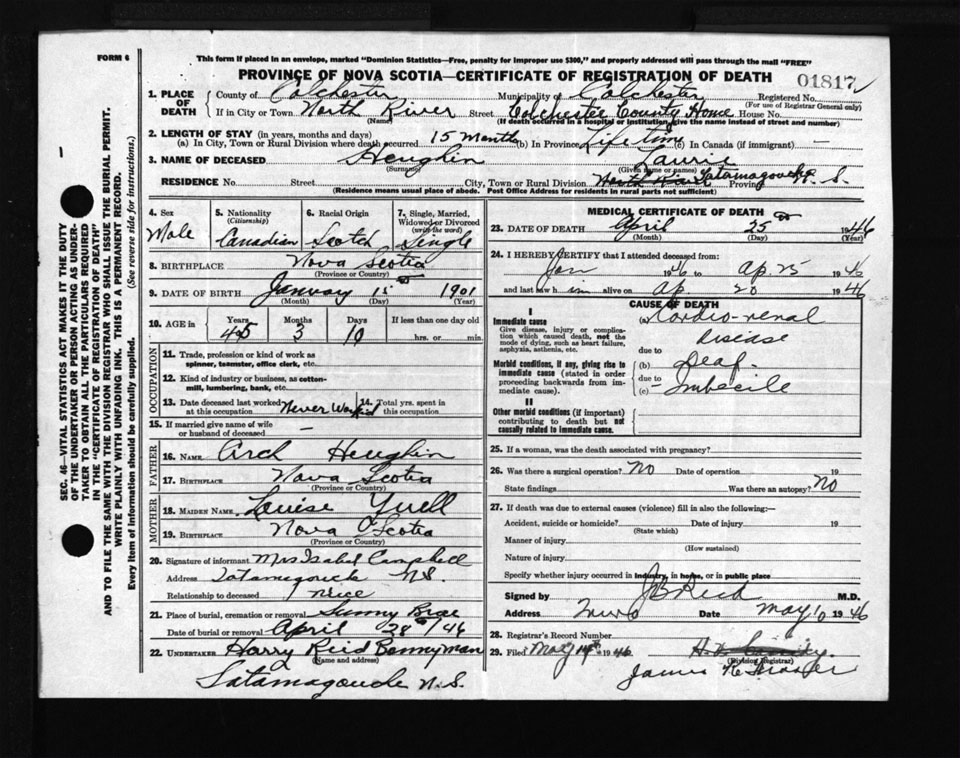 FORM 6
This form if placed in an envelope, marked "Dominion Statistics—Free, penalty for improper use $300," and properly addressed will pass through the mail "FREE"
PROVINCE OF NOVA SCOTIA—CERTIFICATE OF REGISTRATION OF DEATH 01817
1. PLACE OF DEATH County of Colchester Municipality of Colchester Registered No.
(For use of Registrar General only)
If in City or Town North River Street Colchester County Home House No.
(Name) (If death occurred in a hospital or institution, give the name instead of street and number)
2. LENGTH OF STAY (in years, months and days)
(a) In City, Town or Rural Division where death occurred 15 Months (b) In Province Life time (c) In Canada (if immigrant) —
3. NAME OF DECEASED Heughin Laurie
(Surname) (Given name or names)
RESIDENCE No. Street City, Town or Rural Division North River Tatamagouche Province N. S.
(Residence means usual place of abode. Post Office Address for residents in rural parts not sufficient)
SEC. 46—VITAL STATISTICS ACT MAKES IT THE DUTY
OF THE UNDERTAKER OR PERSON ACTING AS UNDER-
TAKER TO OBTAIN ALL THE PARTICULARS REQUIRED
IN THE "CERTIFICATE OF REGISTRATION OF DEATH"
AND TO FILE THE SAME WITH THE DIVISION REGISTRAR WHO SHALL ISSUE THE BURIAL PERMIT.
WRITE PLAINLY WITH UNFADING INK. THIS IS A PERMANENT RECORD.
Every item of information should be carefully supplied. (See reverse side for instructions.)
4. Sex Male
5. Nationality (Citizenship) Canadian
6. Racial Origin Scotch
7. Single, Married, Widowed or Divorced (write the word) Single
8. BIRTHPLACE Nova Scotia
(Province or Country)
9. DATE OF BIRTH January 15 1901
(Month) (Day) (Year)
10. AGE in Years 45 Months 3 Days 10 If less than one day old
hrs. or min.
OCCUPATION
11. Trade, profession or kind of work as
spinner, teamster, office clerk, etc.
12. Kind of industry or business, as cotton-
mill, lumbering, bank, etc.
13. Date deceased last worked at this occupation Never Worked 14. Total yrs. spent in this occupation
15. If married give name of wife
or husband of deceased —
FATHER
16. NAME Arch Heughin
17. BIRTHPLACE Nova Scotia
(Province or Country)
MOTHER
18. MAIDEN NAME Louise Yuell
19. BIRTHPLACE Nova Scotia
(Province or Country)
20. Signature of informant Mrs Isabel Campbell
Address Tatamagouche N.S.
Relationship to deceased niece
21. Place of burial, cremation or removal Sunny Brae
Date of burial or removal April 28 1946
22. UNDERTAKER Harry Reid Bannyman
(Name and address)
Tatamagouche N.S.
MEDICAL CERTIFICATE OF DEATH
23. DATE OF DEATH April 25 1946
(Month) (Day) (Year)
24. I HEREBY CERTIFY that I attended deceased from:
Jan 1946 to Ap. 25 1946
and last saw him alive on Ap. 20 1946
CAUSE OF DEATH
I
Immediate cause
Give disease, injury or complica-
tion which caused death, not the
mode of dying, such as heart failure,
asphyxia, asthenia, etc.
(a) Cardio-renal
Disease
due to
Morbid conditions, if any, giving rise to
immediate cause (stated in order
proceeding backwards from im-
mediate cause).
(b) Deaf -
due to
(c) Imbecile
II
Other morbid conditions (if important)
contributing to death but not
causally related to immediate cause.
25. If a woman, was the death associated with pregnancy?
26. Was there a surgical operation? No Date of operation 19
State findings Was there an autopsy? No
27. If death was due to external causes (violence) fill in also the following:—
Accident, suicide or homicide? Date of injury 19
(State which)
Manner of injury
(How sustained)
Nature of injury
Specify whether injury occurred in industry, in home, or in public place
Signed by J B Reid M.D.
Address Truro Date May 10 1946
28. Registrar's Record Number
29. Filed May 14th 1946
(Division Registrar)
James K. Fraser